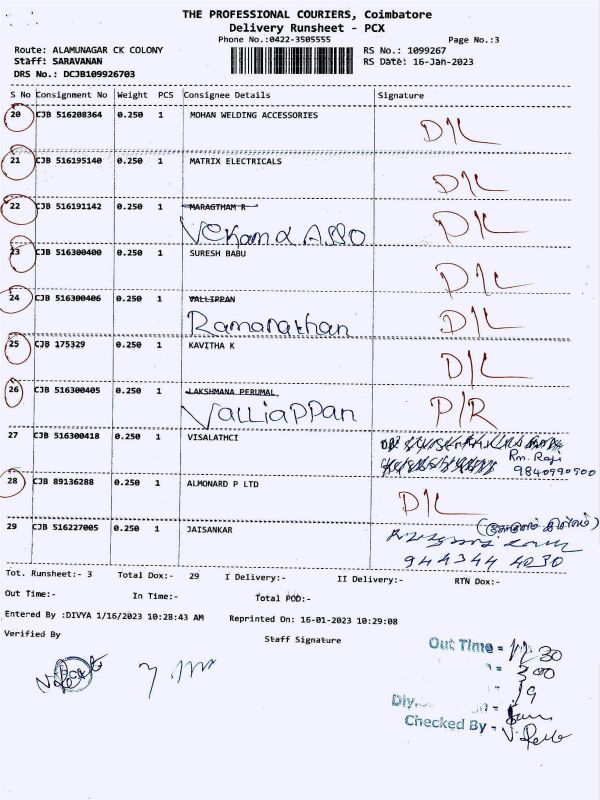 THE PROFESSIONAL COURIERS, Coimbatore
Delivery Runsheet - PCX
Phone No.:0422-3505555 Page No.:3
Route: ALAMUNAGAR CK COLONY RS No.: 1099267
Staff: SARAVANAN RS Date: 16-Jan-2023
DRS No.: DCJB109926703
S No Consignment No Weight PCS Consignee Details Signature
20 CJB 516208364 0.250 1 MOHAN WELDING ACCESSORIES D/L
21 CJB 516195140 0.250 1 MATRIX ELECTRICALS D/L
22 CJB 516191142 0.250 1 MARAGTHAM R D/L
Vekam & ASSO
23 CJB 516300400 0.250 1 SURESH BABU D/L
24 CJB 516300406 0.250 1 VALLIPPAN D/L
Ramanathan
25 CJB 175329 0.250 1 KAVITHA K D/L
26 CJB 516300405 0.250 1 LAKSHMANA PERUMAL P/R
Valliappan
27 CJB 516300418 0.250 1 VISALATHCI
Rm. Raji
9840990500
28 CJB 89136288 0.250 1 ALMONARD P LTD D/L
29 CJB 516227005 0.250 1 JAISANKAR
944344 4030
Tot. Runsheet:- 3 Total Dox:- 29 I Delivery:- II Delivery:- RTN Dox:-
Out Time:- In Time:- Total POD:-
Entered By :DIVYA 1/16/2023 10:28:43 AM Reprinted On: 16-01-2023 10:29:08
Verified By Staff Signature
Out Time = 11.30
= 300
19
Checked By -